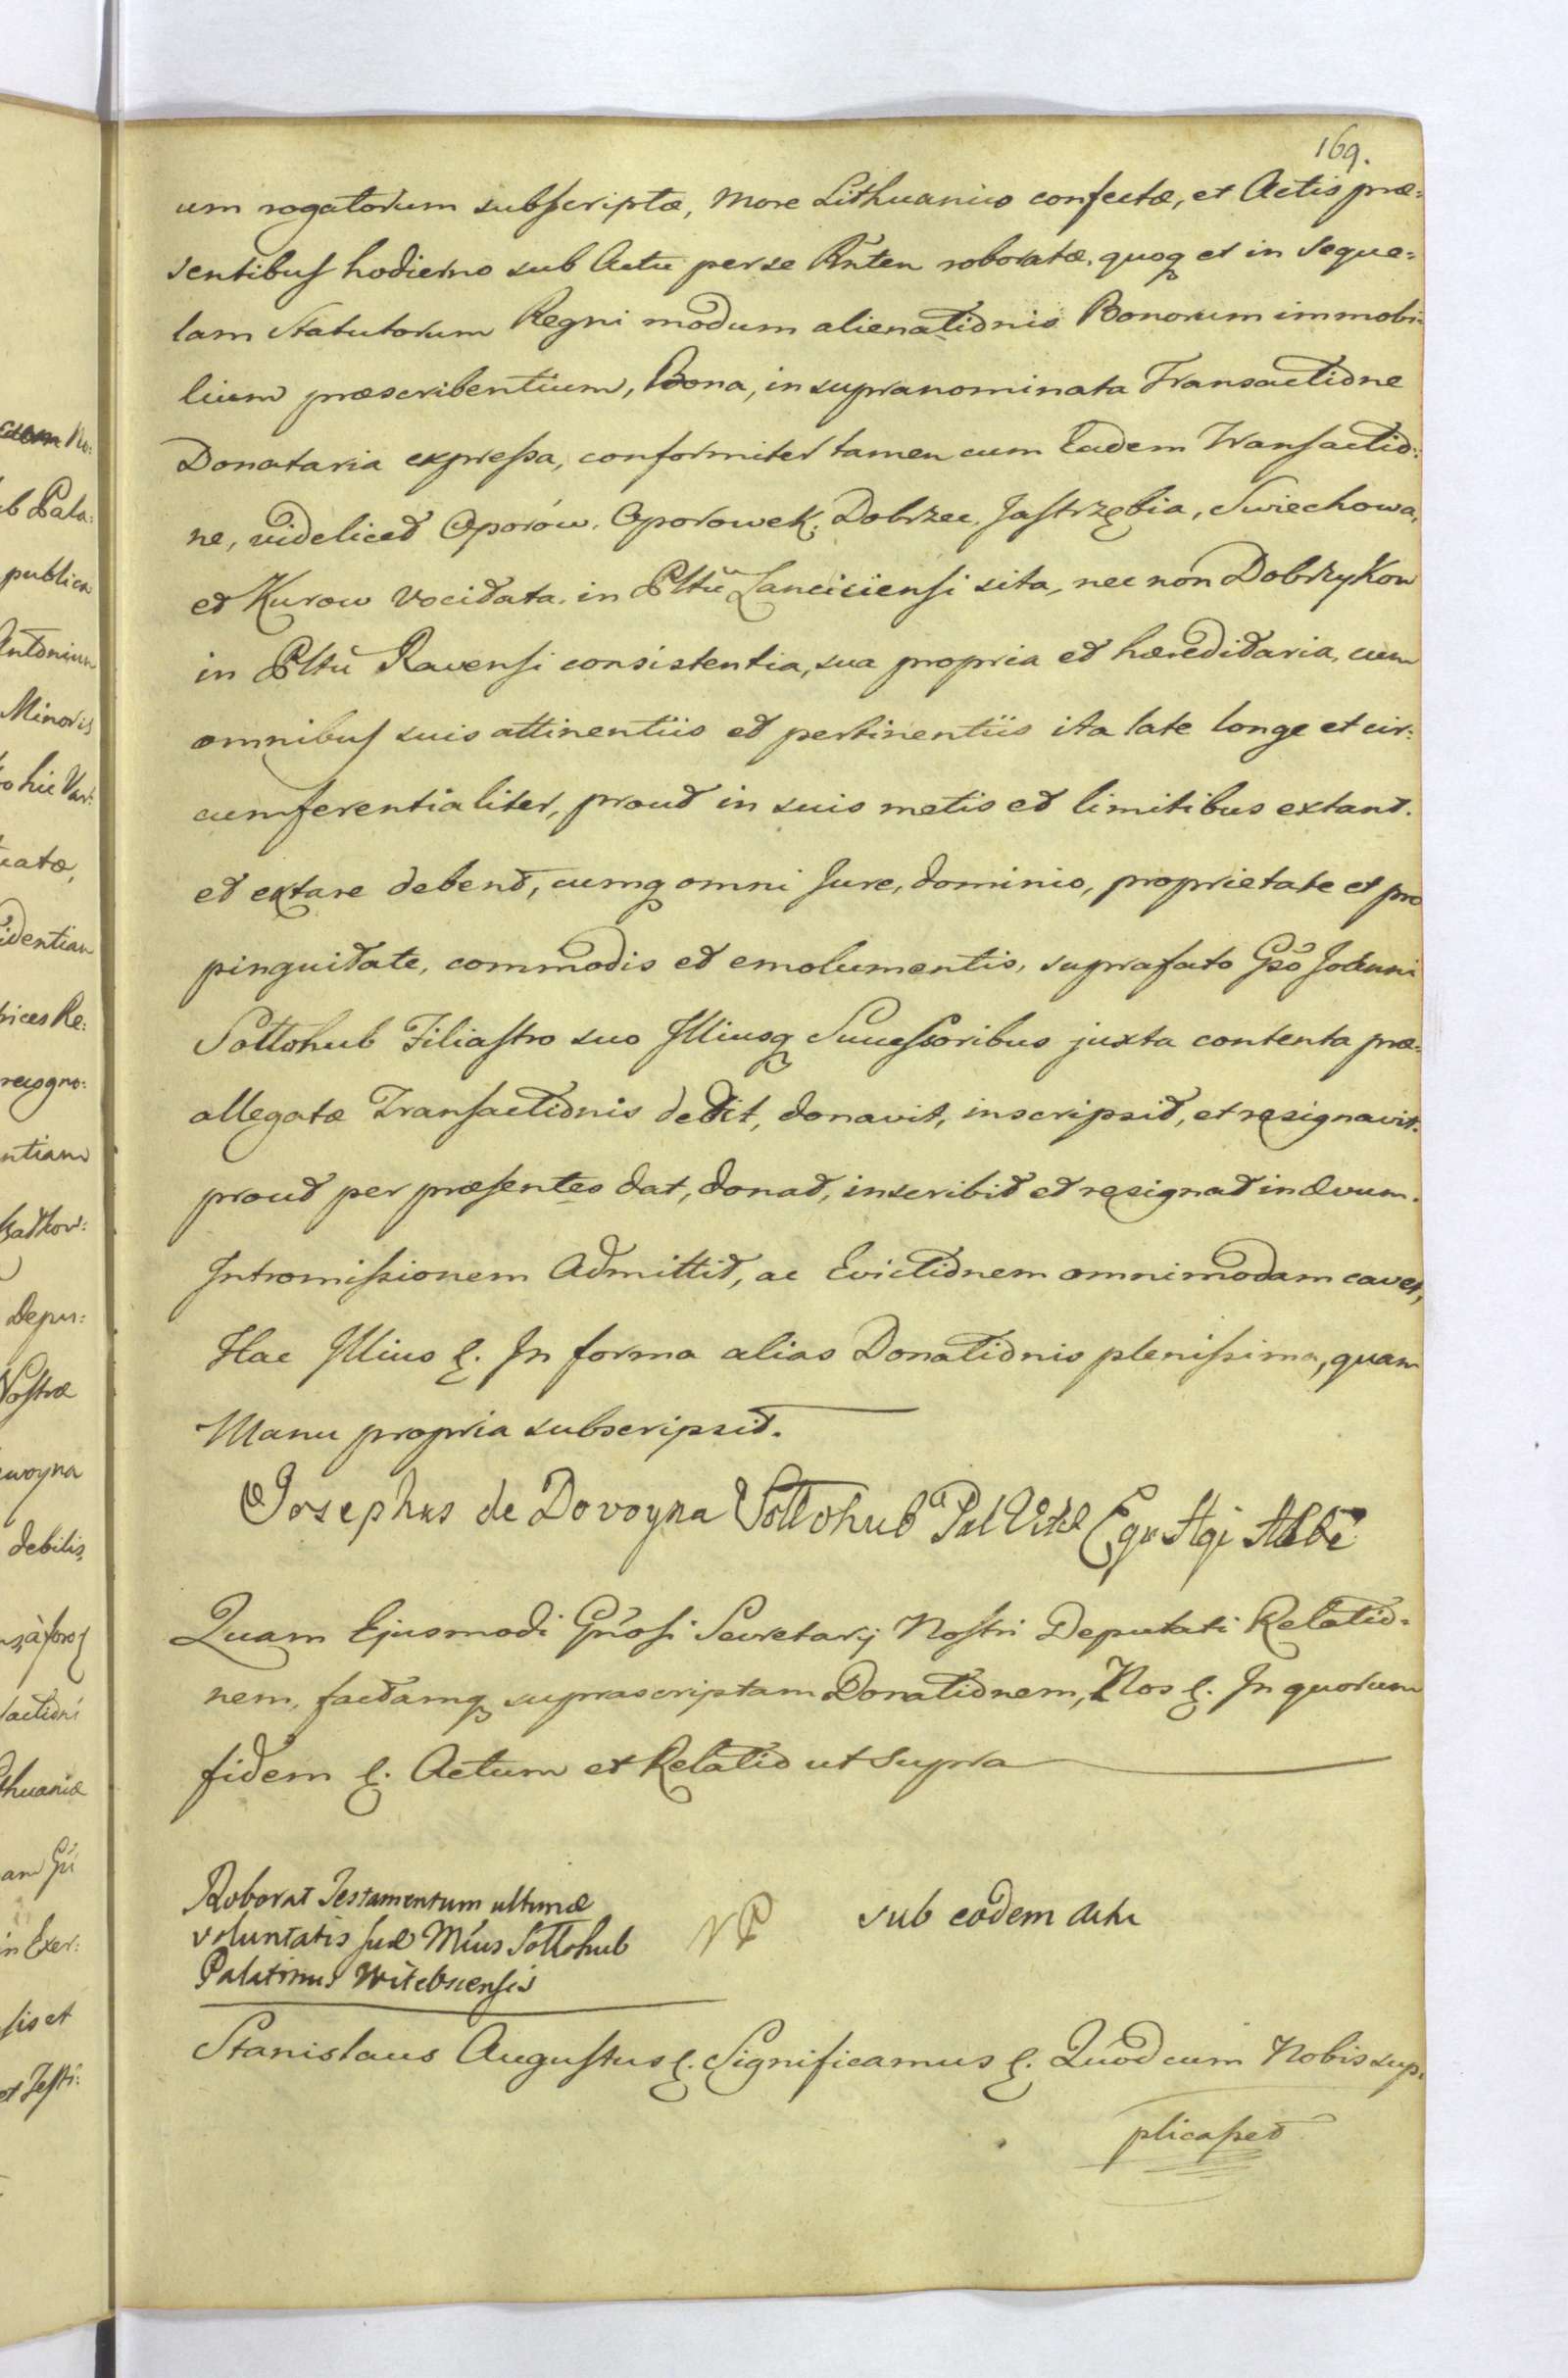 169.
um rogatorum subscriptæ, More Lithuanico confectæ, et Actis præ=
sentibus hodierno sub Actu per se Pñten roboratæ, quoq et in seque=
lam Statutorum Regni modum alienationis Bonorum immobi=
lium præscribentium, Bona, in supranominata Transactione
Donataria expressa, conformiter tamen cum Eadem Transactio=
ne, videlicet Oporów, Oporowek, Dobrzec, Jastrzębia, Swiechowa,
et Kurow vocitata, in Pltũ Lanciciensi sita, nec non Dobrzykow
in Pltũ Ravensi consistentia, sua propria et hæreditaria, cum
omnibus suis attinentiis et pertinentiis ita late longe et cir=
cumferentialiter, prout in suis metis et limitibus extant.
et extare debent, cumq omni Jure, dominio, proprietate et pro
pinquitate, commodis et emolumentis, suprafato Gsõ Joanni
Sołłohub Filiastro suo Illiusq Successoribus juxta contenta præ=
allegatæ Transactionis dedit, donavit, inscripsit, et resignavit.
prout per præsentes dat, donat, inscribit et resignat in ævum.
Intromissionem Admittit, ac Evictionem omnimodam cavet,
Hac Illius &. In forma alias Donationis plenissima, quam
Manu propria subscripsit.
Josephus de Dovoyna Sołłohub Pal Vitel Equ Aqi Albĩ
Quam Ejusmodi Gñosi Secretarij Nostri Deputati Relatio=
nem, factamq suprascriptam Donationem, Nos &. In quorum
fidem &. Actum et Relatio ut supra
Roborat Testamentum ultimæ
voluntatis suæ Mĩus Sołłohub
Palatinus Witebscensis
sub eodem actu
Stanislaus Augustus &. Significamus &. Quod cum Nobis sup=
plicasset